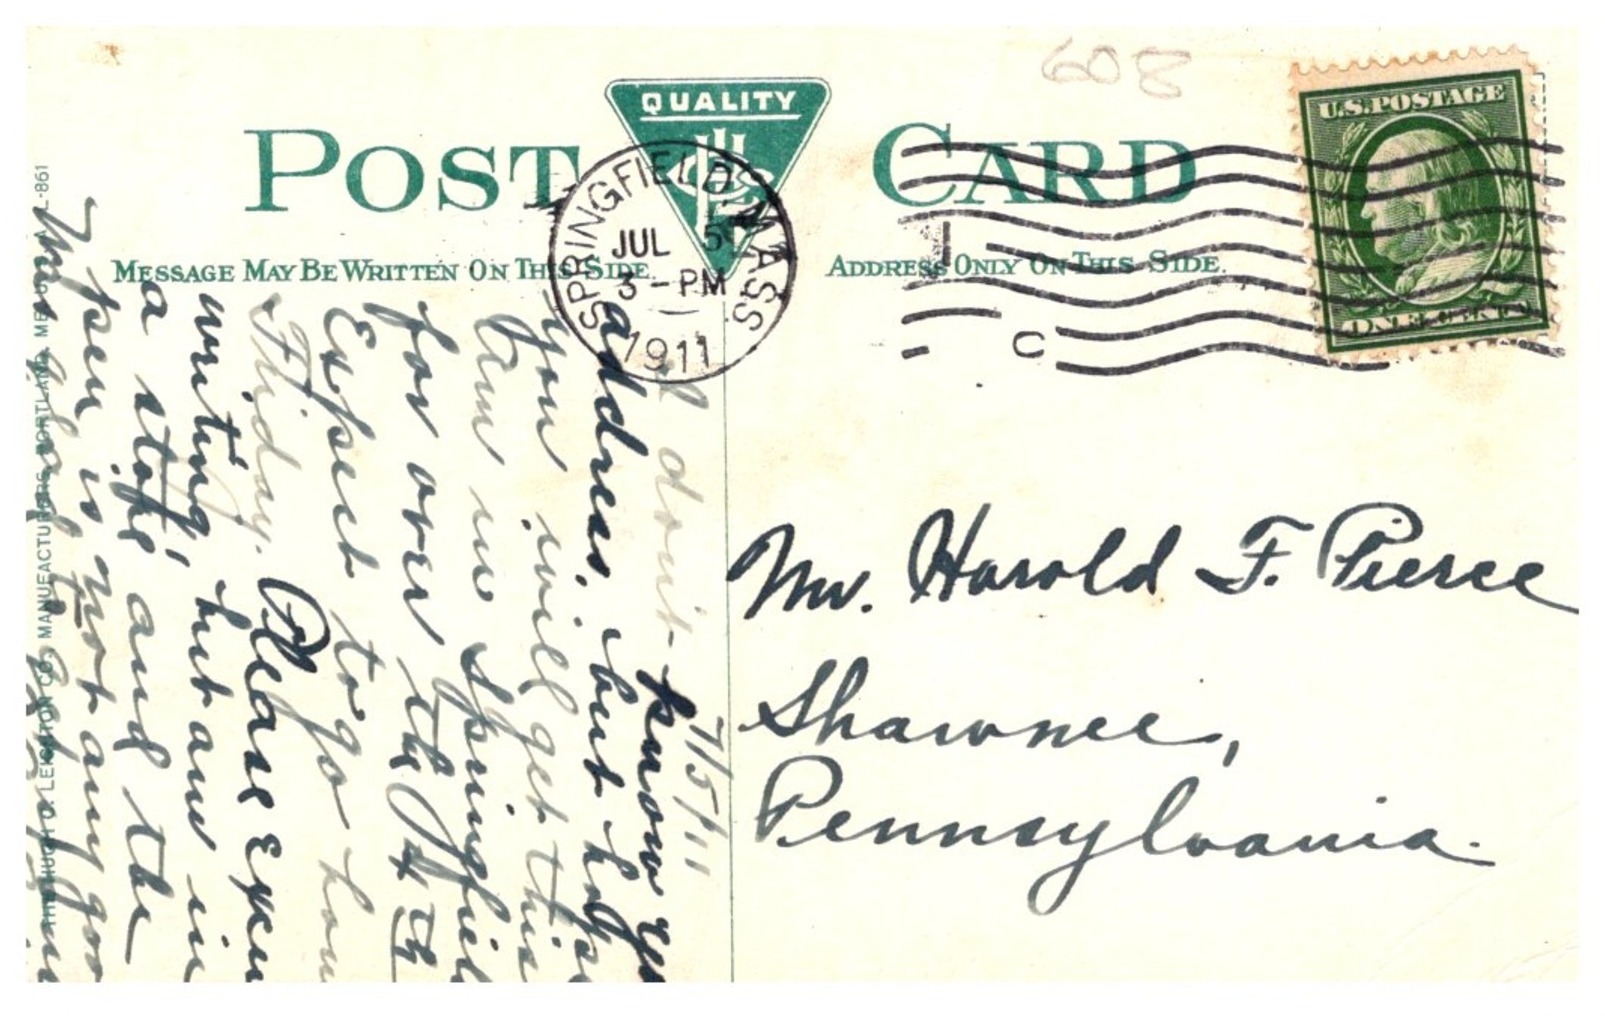 608
U.S. POSTAGE
ONE CENT
QUALITY
POST CARD
SPRINGFIELD, MASS
JUL 5
3-PM
1911
C
MESSAGE MAY BE WRITTEN ON THIS SIDE.
ADDRESS ONLY ON THIS SIDE.
7/5/11
I don't know yo
address, but hope
you will get this
Am in Springfiel
for over the 4th
Expect to go hom
Friday. Please excu
writing, but am in
a store and the
pen is not any goo
Mr. Harold F. Pierce
Shawnee,
Pennsylvania.
THE HUGH C. LEIGHTON CO., MANUFACTURERS, PORTLAND, ME., U.S.A.